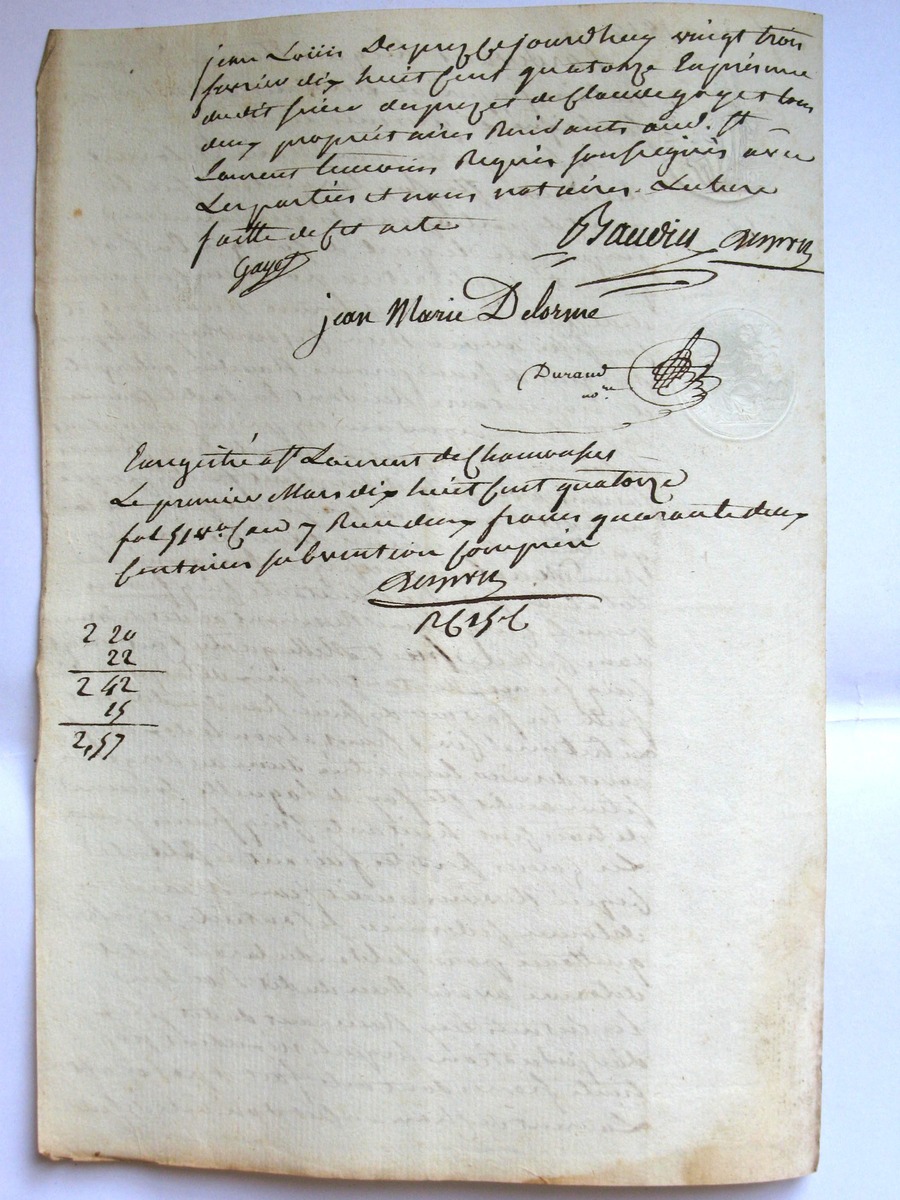 jean Louis Desprez Cejourdhuy vingt trois
fevrier dix huit Cent quatorze En presence
dudit sieur desprez et de Claude gayet tous
deux propriétaires Residants aud. St
Laurent temoins Requis soussignés avec
Les parties et nous notaires. Lecture
faitte de Cet acte
Baudin
Gayet
jean Marie Delorme
Durand
nore
Enregistré a St Laurent de Chamousset
Le premier Mars dix huit Cent quatorze
fol 51 vo Case 7 Reçu deux francs quarante deux
Centimes subvention Comprise
2 20
22
2 42
15
2,57